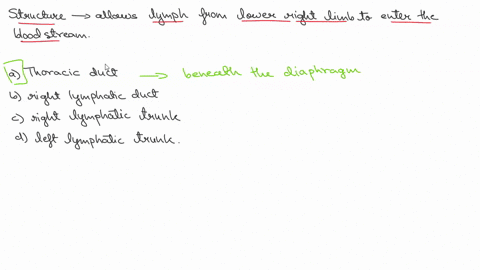 Structure → allows lymph from lower right limb to enter the
blood stream.
a) Thoracic duct → beneath the diaphragm
b) right lymphatic duct
c) right lymphatic trunk
d) left lymphatic trunk.